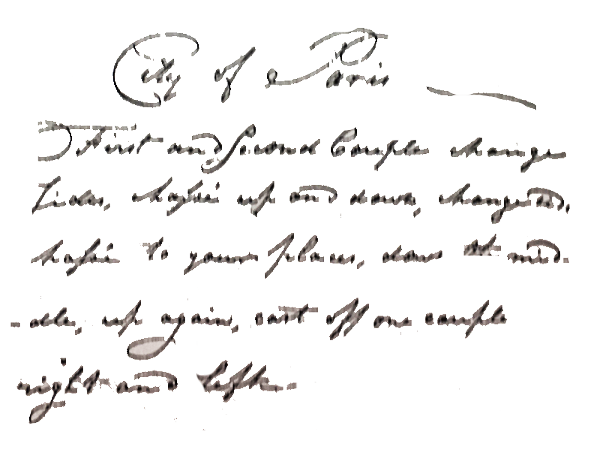 City of Paris
First and Second Couple change
Sides, chassé up and down, change
chassé to your places, down the mid-
-dle, up again, cast off one couple
right and left.